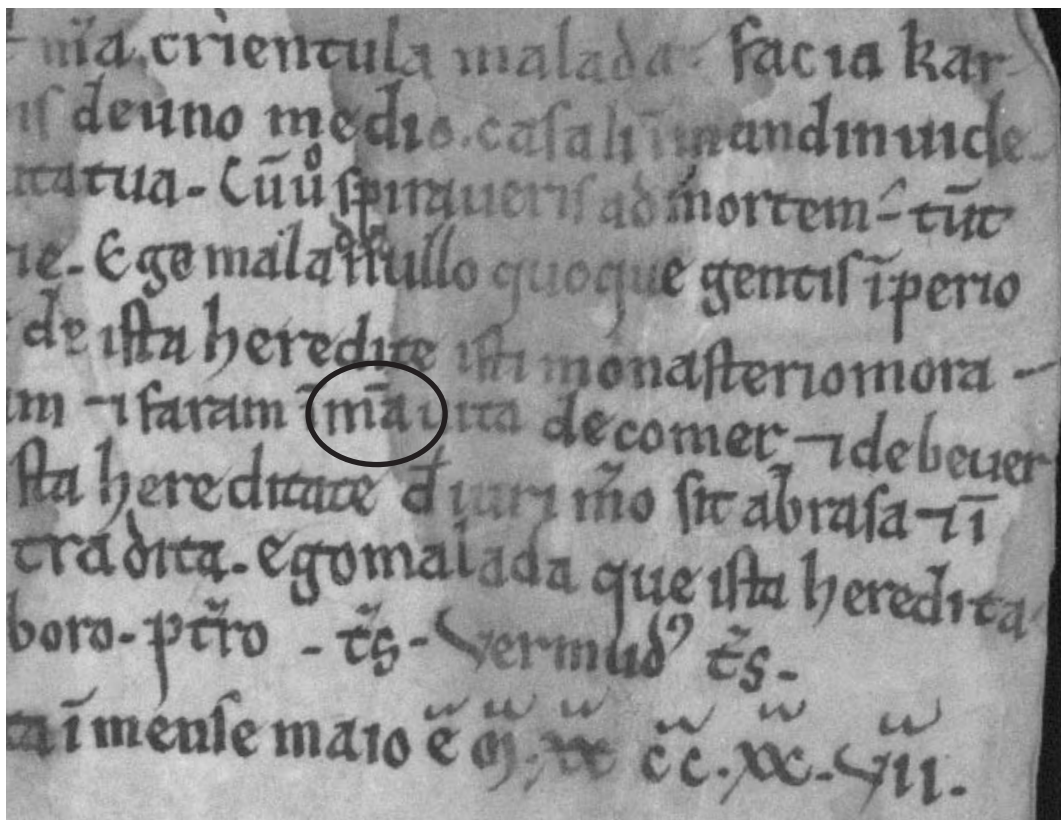 m̃a. crientula malada. facia kar
is de uno medio. casal ĩ mandin uide
tatua - Cũ ũo spiraueris ad mortem - tũc
rie - Ego malada ñ ullo quoque gentis ĩperio
de ista heredite isti monasterio mora -
am ⁊ faram ĩ m̃a uita de comer ⁊ de beuer
sta hereditate d iuri m̃o sit abrasa ⁊ ĩ
tradita. Ego malada que ista heredita
boro - pt̃ro - t̃s - Vermudꝰ t̃s -
ta ĩ mense maio ẽ M. c̃c. xx. VII.